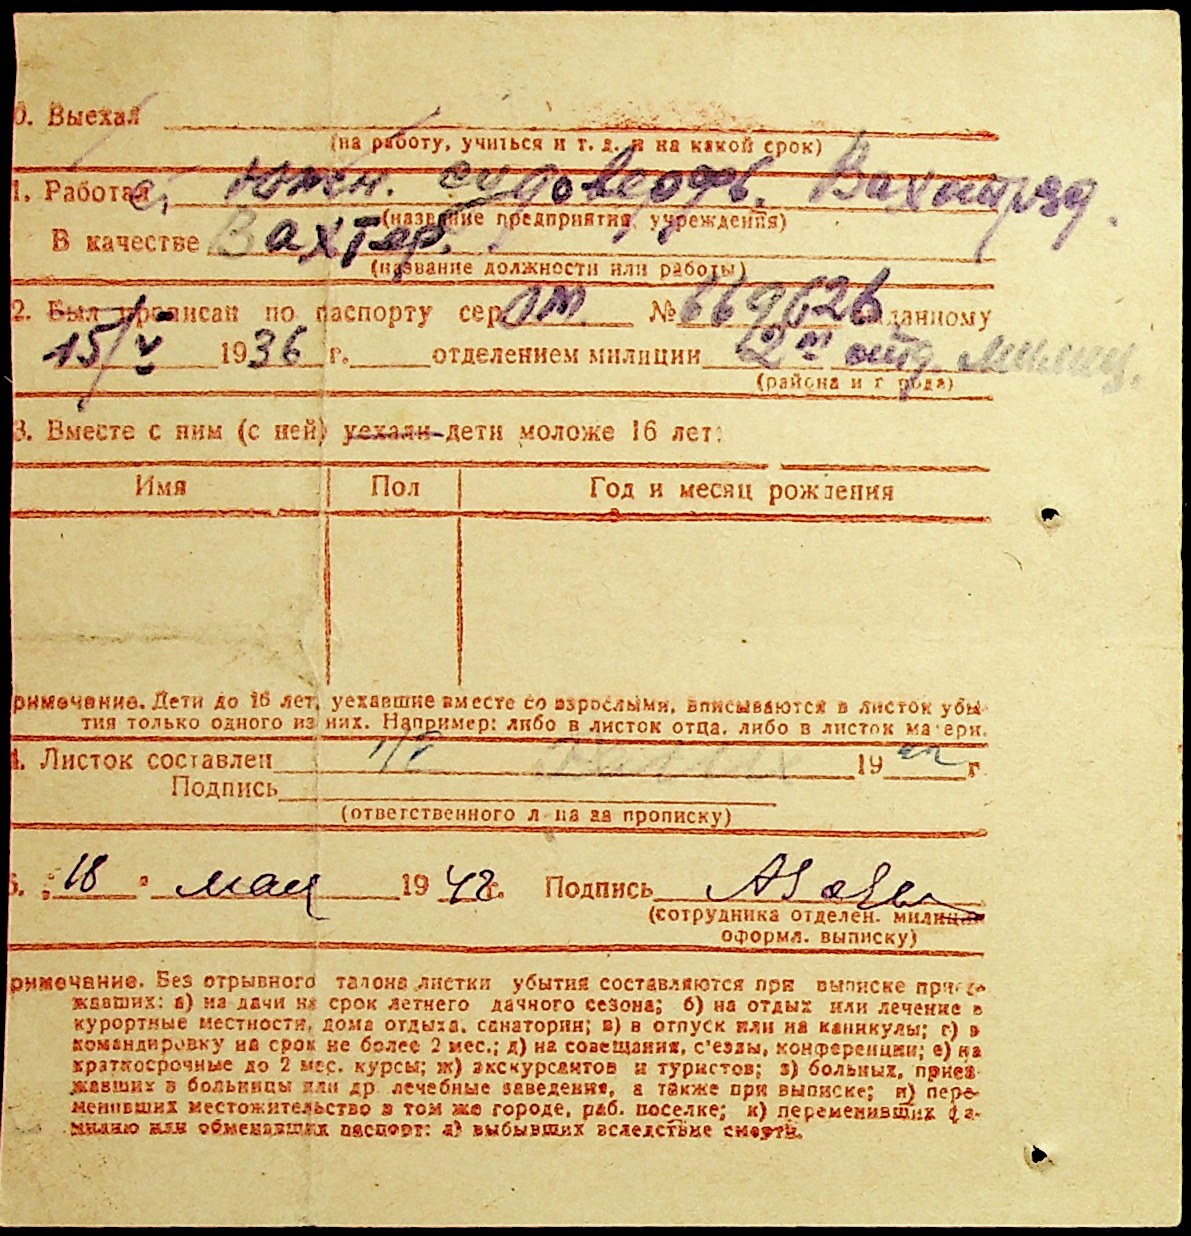 0. Выехал
(на работу, учиться и т. д. и на какой срок)
1. Работал Южн. судоверфь. Вахтотряд.
(название предприятия, учреждения)
В качестве Вахтер.
(название должности или работы)
2. Был прописан по паспорту сер ОМ № 669626 выданному
15/V 1936 г. отделением милиции 2м отд. милиц.
(района и города)
3. Вместе с ним (с ней) уехали дети моложе 16 лет:
Имя Пол Год и месяц рождения
римечание. Дети до 16 лет, уехавшие вместе со взрослыми, вписываются в листок убы-
тия только одного из них. Например: либо в листок отца, либо в листок матери.
4. Листок составлен 19 г
Подпись
(ответственного лица за прописку)
5. „18" мая 1942 г. Подпись
(сотрудника отделен. милиции
оформл. выписку)
римечание. Без отрывного талона листки убытия составляются при выписке приез-
жавших: а) на дачи на срок летнего дачного сезона; б) на отдых или лечение в
курортные местности, дома отдыха, санатории; в) в отпуск или на каникулы; г) в
командировку на срок не более 2 мес.; д) на совещания, с'езды, конференции; е) на
краткосрочные до 2 мес. курсы; ж) экскурсантов и туристов; з) больных, приез-
жавших в больницы или др. лечебные заведения, а также при выписке; и) пере-
менивших местожительство в том же городе, раб. поселке; к) переменивших фа-
милию или обменявших паспорт: л) выбывших вследствие смерти.